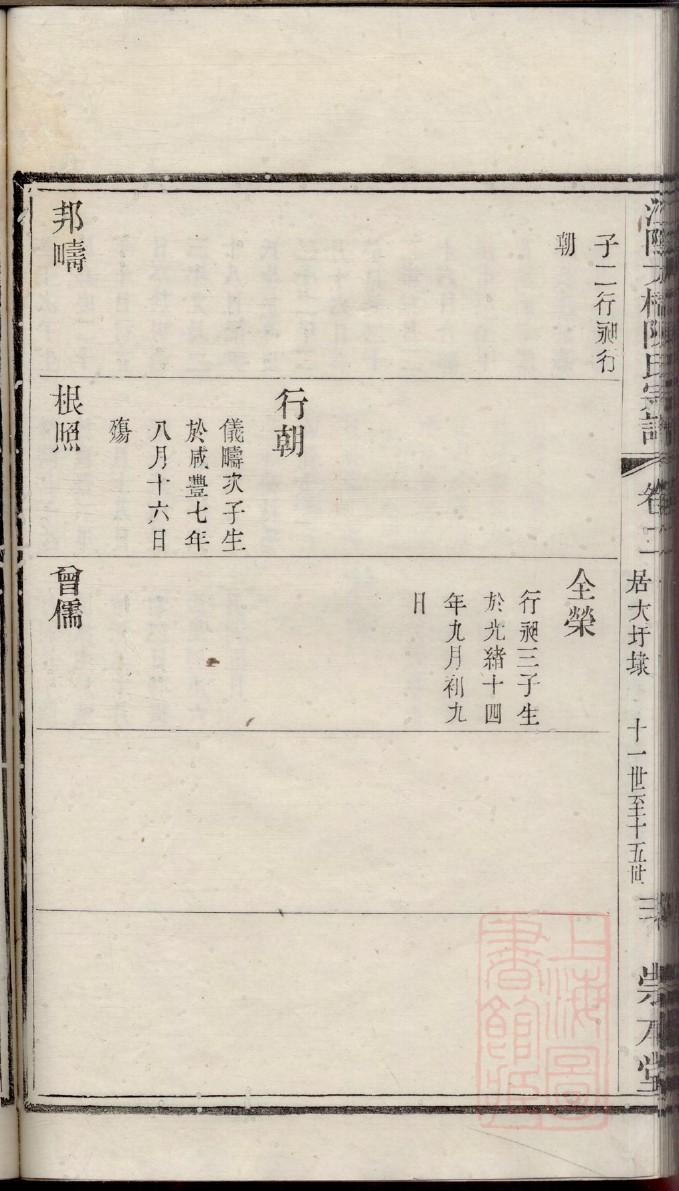 陳氏宗譜
卷二
居大圩埭
十一世至十五世
崇本堂
子二行昶行
朝
邦疇
行朝
儀疇次子生
於咸豐七年
八月十六日
殤
根照
全榮
行昶三子生
於光緒十四
年九月初九
日
曾儒
上海圖
書館藏